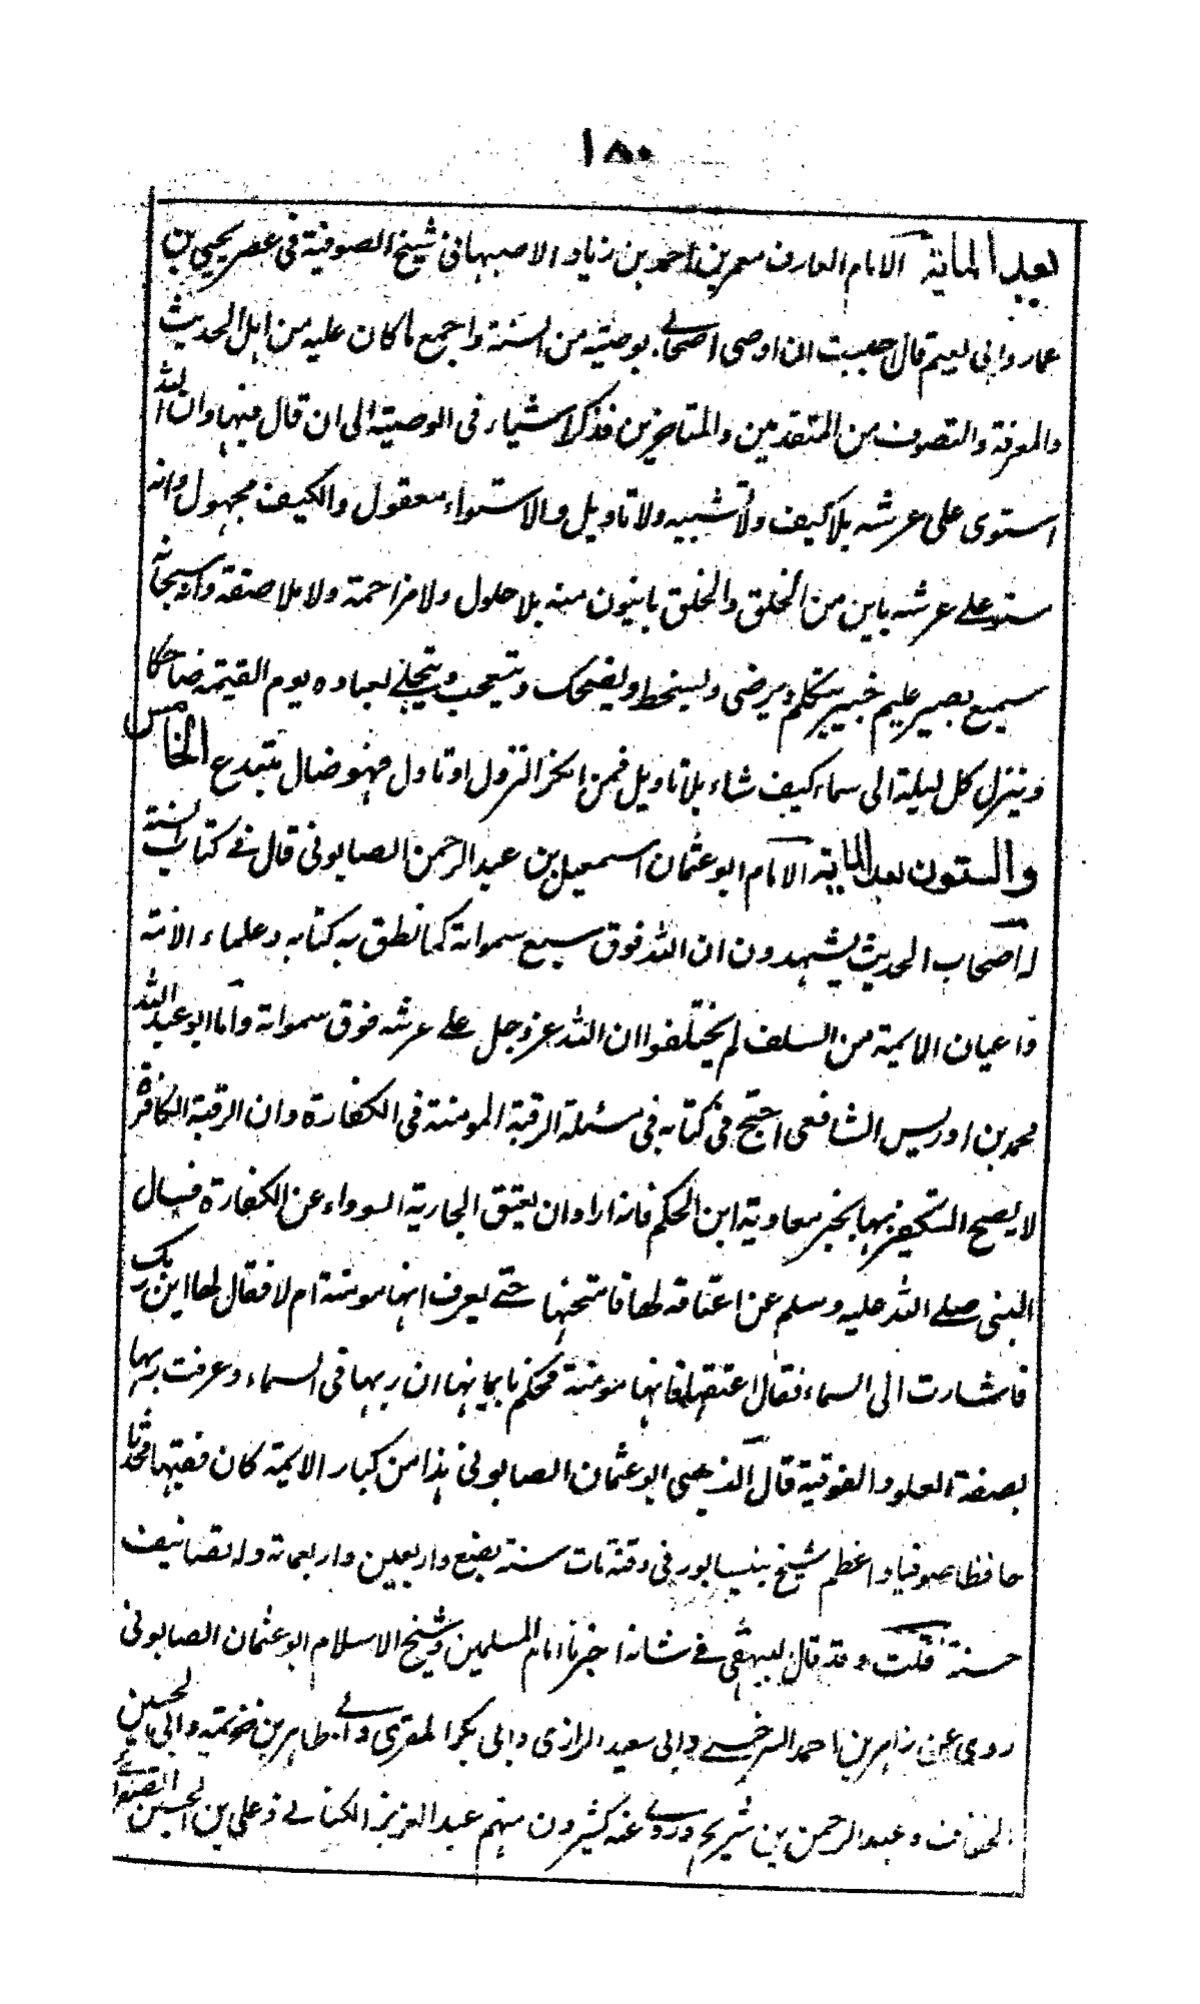 ١٨٠
بعد الماية الامام العارف معمر بن احمد بن زياد الاصبهانى شيخ الصوفية فى عصر يحيى بن
عمار وابى نعيم قال حببت ان اوصى اصحابي بوصية من السنة واجمع ما كان عليه من اهل الحديث
والمعرفة والتصوف من المتقدمين والمتاخرين فذكر اشياء فى الوصية الى ان قال فيها وان الله
استوى على عرشه بلا كيف ولا تشبيه ولا تاويل والاستواء معقول والكيف مجهول وانه
مستو على عرشه باين من الخلق والخلق باينون منه بلا حلول ولا مزاحمة ولا ملاصقة وانه سبحانه
سميع بصير عليم خبير يتكلم ويرضى ويسخط ويضحك ويتعجب ويتجلى لعباده يوم القيمة ضاحكا
وينزل كل ليلة الى سماء كيف شاء بلا تاويل فمن انكر النزول او تاول فهو ضال مبتدع الخامس
والستون بعد الماية الامام ابو عثمان اسمعيل بن عبد الرحمن الصابونى قال فى كتاب السنة
له اصحاب الحديث يشهدون ان الله فوق سبع سمواته كما نطق به كتابه وعلماء الامة
واعيان الايمة من السلف لم يختلفوا ان الله عز وجل على عرشه فوق سمواته واما ابو عبد الله
محمد بن ادريس الشافعى احتج فى كتابه فى مسئلة الرقبة المومنة فى الكفارة وان الرقبة الكافرة
لا يصح التكفير بها بخبر معاوية ابن الحكم فانه اراد ان يعتق الجارية السوداء عن الكفارة فسال
النبى صلى الله عليه وسلم عن اعتاقه لها فامتحنها حتى يعرف انها مومنة ام لا فقال لها اين ربك
فاشارت الى السماء فقال اعتقها فانها مومنة فحكم بايمانها ان ربها فى السماء وعرفت ربها
بصفة العلو والفوقية قال الذهبى ابو عثمان الصابونى هذا من كبار الايمة كان فقيها محدثا
حافظا صوفيا واعظم شيخ بنيسابور فى وقته مات سنة بضع واربعين واربعماة وله تصانيف
حسنة قلت وقد قال البيهقى فى شانه اخبرنا امام المسلمين وشيخ الاسلام ابو عثمان الصابونى
روى عن زاهر بن احمد السرخسى وابى سعيد الرازى وابى بكر المقرى وابى طاهر بن خزيمة وابى الحسين
الخفاف وعبد الرحمن بن شريح وروى عنه كثيرون منهم عبد العزيز الكتانى وعلى بن الحسين